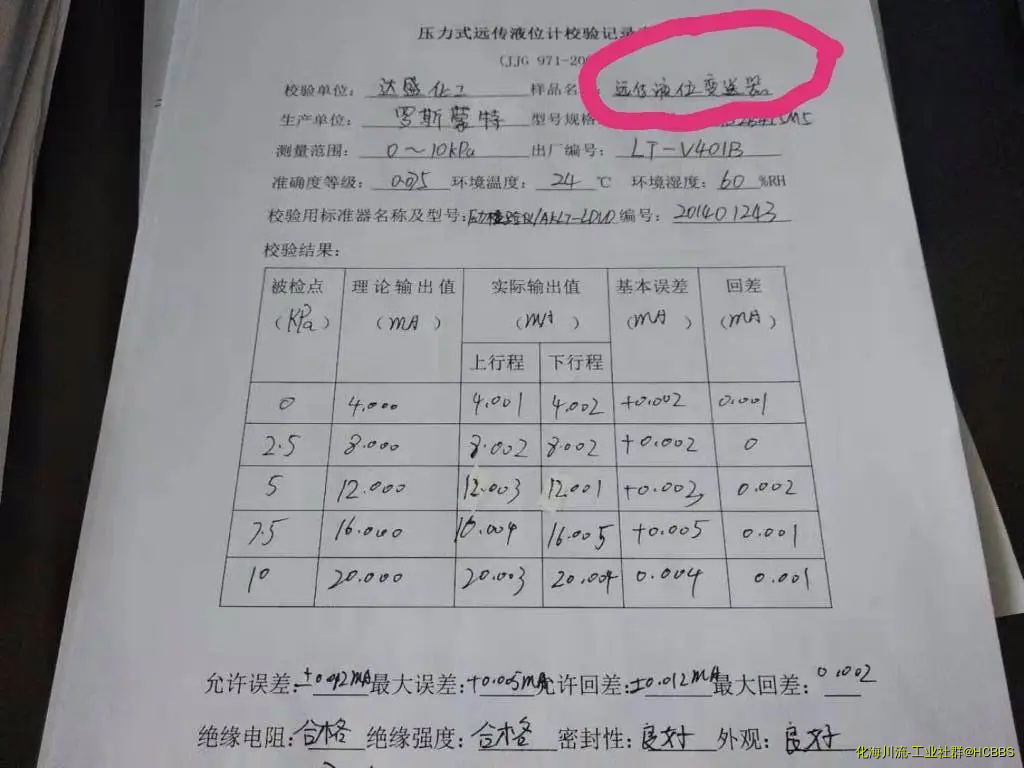 压力式远传液位计校验记录
(JJG 971-200
校验单位: 达盛化工 样品名 远传液位变送器
生产单位: 罗斯蒙特 型号规格
测量范围: 0~10kPa 出厂编号: LT-V401B
准确度等级: 0.075 环境温度: 24 ℃ 环境湿度: 60 %RH
校验用标准器名称及型号: 编号: 201401243
校验结果:
被检点 理论输出值 实际输出值 基本误差 回差
(KPa) (mA) (mA) (mA) (mA)
上行程 下行程
0 4.000 4.001 4.002 +0.002 0.001
2.5 8.000 8.002 8.002 +0.002 0
5 12.000 12.003 12.001 +0.003 0.002
7.5 16.000 16.004 16.005 +0.005 0.001
10 20.000 20.003 20.004 0.004 0.001
允许误差: ±0.012mA 最大误差: +0.005mA 允许回差: ±0.012mA 最大回差: 0.002
绝缘电阻: 合格 绝缘强度: 合格 密封性: 良好 外观: 良好
化海川流-工业社群@HCBBS